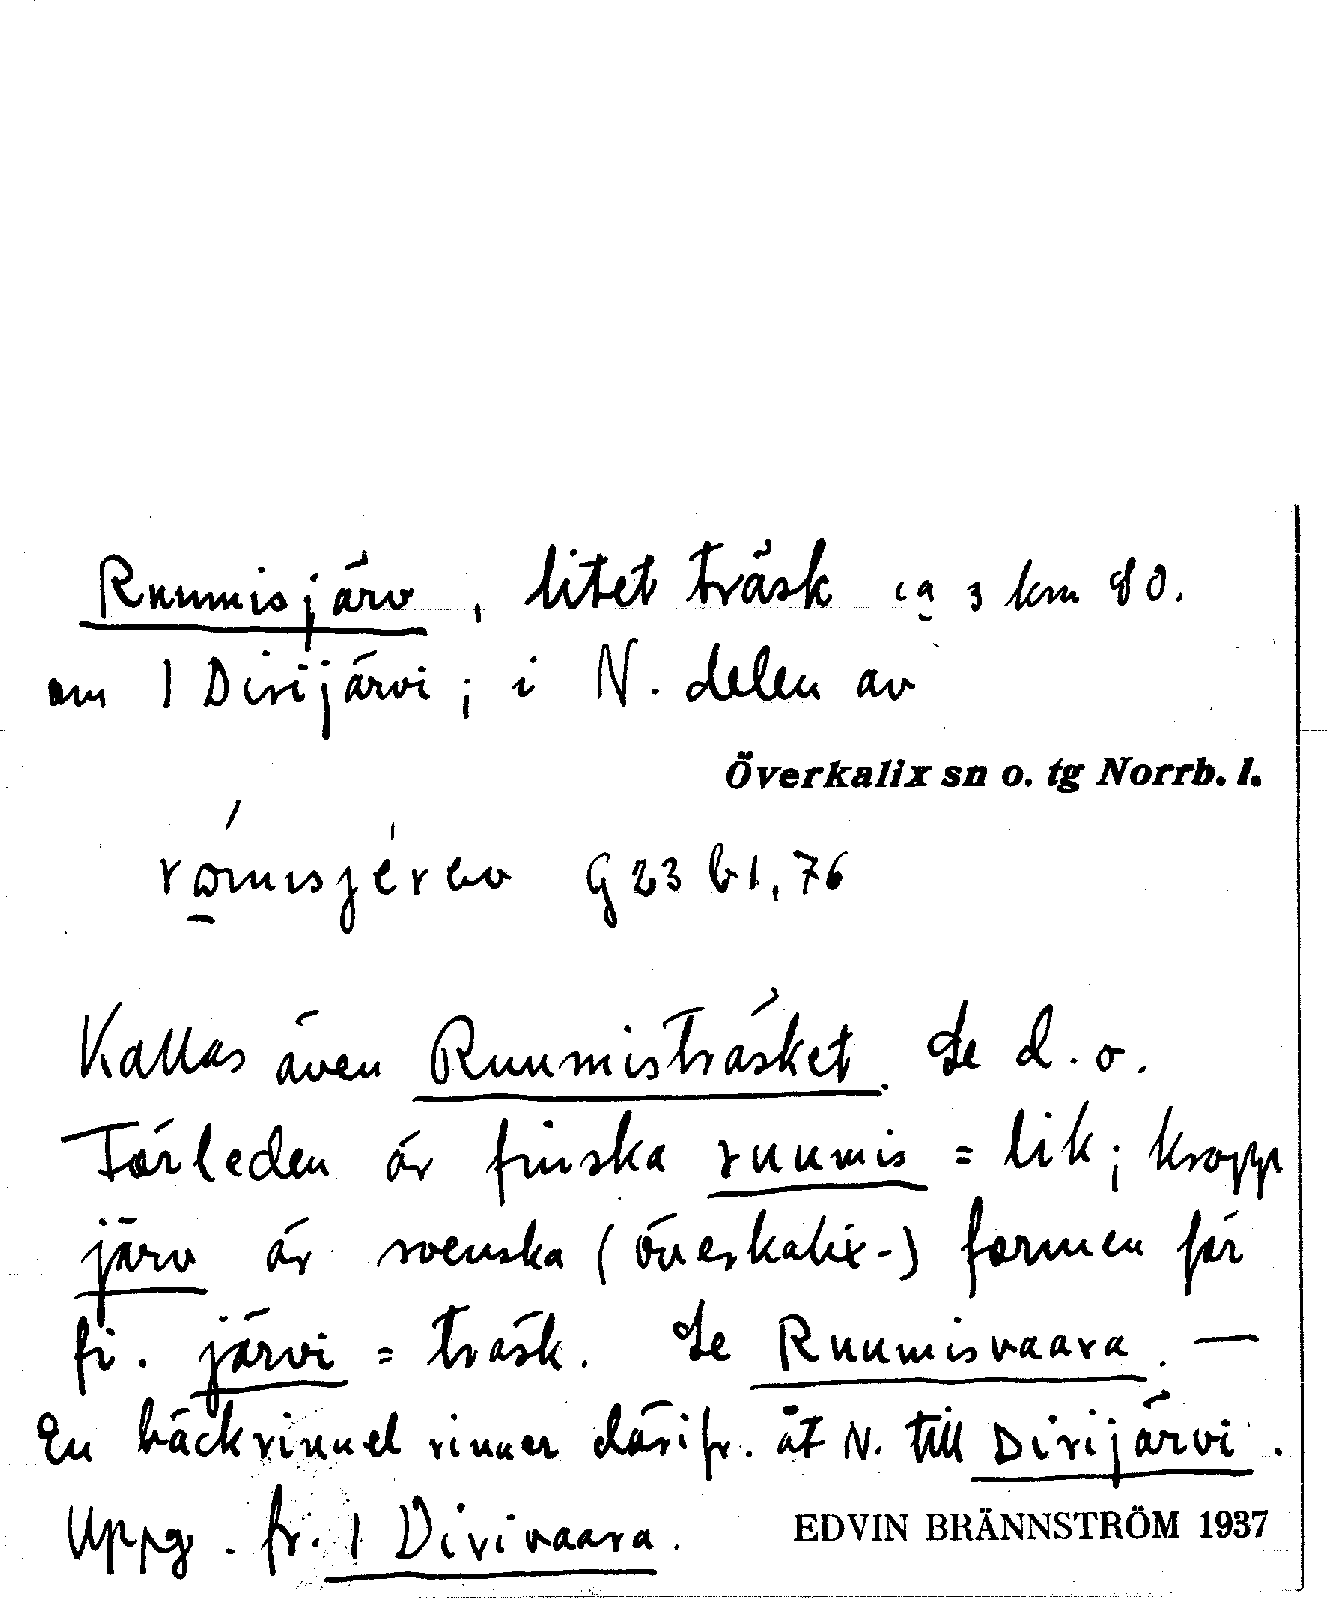 Ruumisjärv, litet träsk ca 3 km SO.
om 1 Dirijärvi; i N. delen av
Överkalix sn o. tg Norrb. l.
G 23 b 1, 76
Kallas även Ruumisträsket. Se d. o.
Förleden är finska ruumis = lik; kropp
järv är svenska (överkalix-) formen för
fi. järvi = träsk. Se Ruumisvaara. —
En bäckrinnel rinner därifr. åt N. till Dirijärvi.
Uppg. fr. 1 Dirivaara.
EDVIN BRÄNNSTRÖM 1937